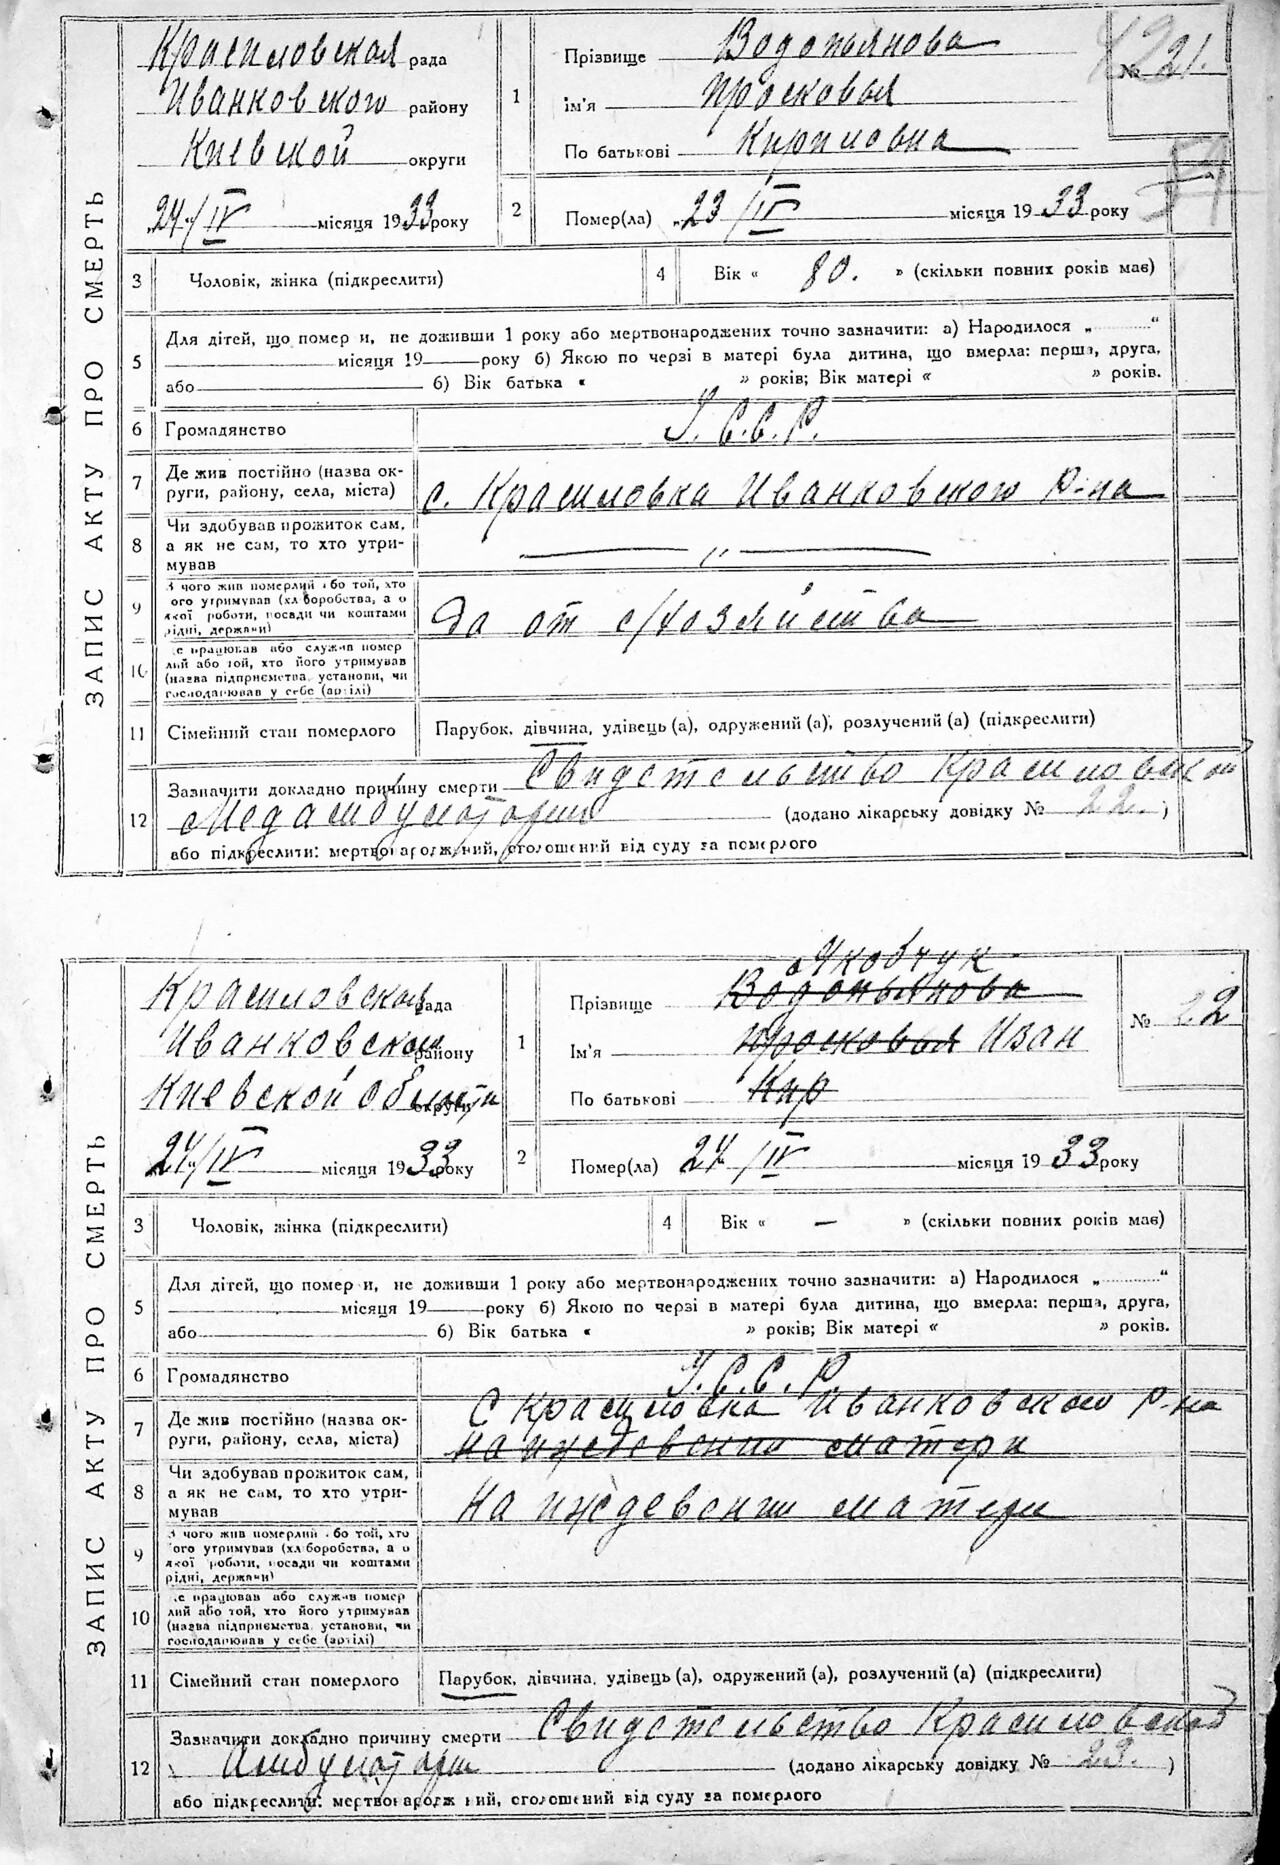 ЗАПИС АКТУ ПРО СМЕРТЬ
Красиловская рада
Иванковского району
Киевской округи
24/IV місяця 1933 року
1
Прізвище Водопьянова
ім'я Просковья
По батькові Кириловна
№ 21.
2
Помер(ла) „23/IV місяця 1933 року
3 Чоловік, жінка (підкреслити)
4 Вік « 80. » (скільки повних років має)
5 Для дітей, що помер и, не доживши 1 року або мертвонароджених точно зазначити: а) Народилося „ “
місяця 19 року б) Якою по черзі в матері була дитина, що вмерла: перша, друга,
або б) Вік батька « » років; Вік матері « » років.
6 Громадянство У.С.С.Р.
7 Де жив постійно (назва ок-
руги, району, села, міста) с. Красиловка Иванковского р-на
8 Чи здобував прожиток сам,
а як не сам, то хто утри-
мував — „ —
9 З чого жив померлий або той, хто
ого утримував (хл боробства, а о
якої роботи, посади чи коштами
рідні, держави) да от с/хозяйства
10 е працював або служив помер
лий або той, хто його утримував
(назва підприємства, установи, чи
господарював у себе (артілі)
11 Сімейний стан померлого Парубок, дівчина, удівець (а), одружений (а), розлучений (а) (підкреслити)
12 Зазначити докладно причину смерти Свидетельство Красиловской
Медамбулатории (додано лікарську довідку № 22.)
або підкреслити: мертвонароджений, оголошений від суду за померлого
ЗАПИС АКТУ ПРО СМЕРТЬ
Красиловская рада
Иванковском району
Киевской области округи
24/IV місяця 1933 року
1
Якобчук
Прізвище Водопьянова
Ім'я Просковья Иван
По батькові Кир
№ 22
2
Помер(ла) 24/IV місяця 1933 року
3 Чоловік, жінка (підкреслити)
4 Вік « — » (скільки повних років має)
5 Для дітей, що помер и, не доживши 1 року або мертвонароджених точно зазначити: а) Народилося „ “
місяця 19 року б) Якою по черзі в матері була дитина, що вмерла: перша, друга,
або б) Вік батька « » років; Вік матері « » років.
6 Громадянство У.С.С.Р
7 Де жив постійно (назва ок- С Красиловка Иванковского р-на
руги, району, села, міста) на иждевении матери
8 Чи здобував прожиток сам,
а як не сам, то хто утри-
мував на иждевении матери
9 З чого жив померлий або той, хто
ого утримував (хл боробства, а о
якої роботи, посади чи коштами
рідні, держави)
10 е працював або служив помер
лий або той, хто його утримував
(назва підприємства, установи, чи
господарював у себе (артілі)
11 Сімейний стан померлого Парубок, дівчина, удівець (а), одружений (а), розлучений (а) (підкреслити)
12 Зазначити докладно причину смерти Свидетельство Красиловской
Амбулатории (додано лікарську довідку № 23.)
або підкреслити: мертвонародж ний, оголошений від суду за померлого